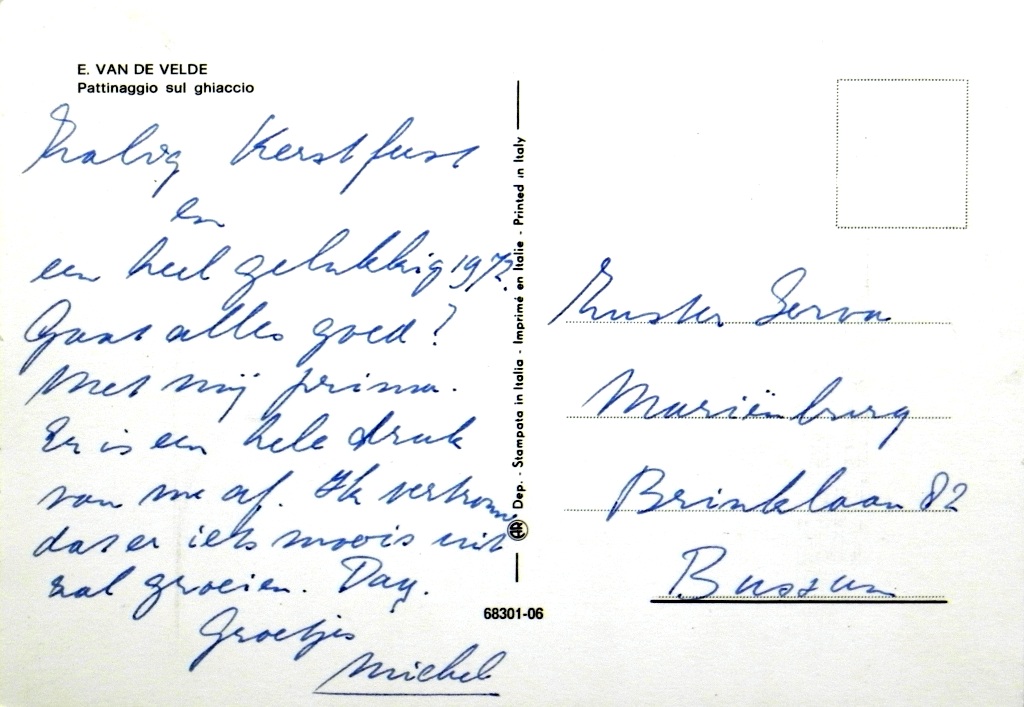 E. VAN DE VELDE
Pattinaggio sul ghiaccio
Zalig Kerstfeest
en
een heel gelukkig 1972.
Gaat alles goed?
Met mij prima.
Er is een hele druk
van me af. Ik vertrouw
dat er iets moois uit
zal groeien. Dag.
Groetjes
Michel
AR Dep. - Stampata in Italia - Imprimé en Italie - Printed in Italy
68301-06
Zuster Serva
Mariënburg
Brinklaan 82
Bussum